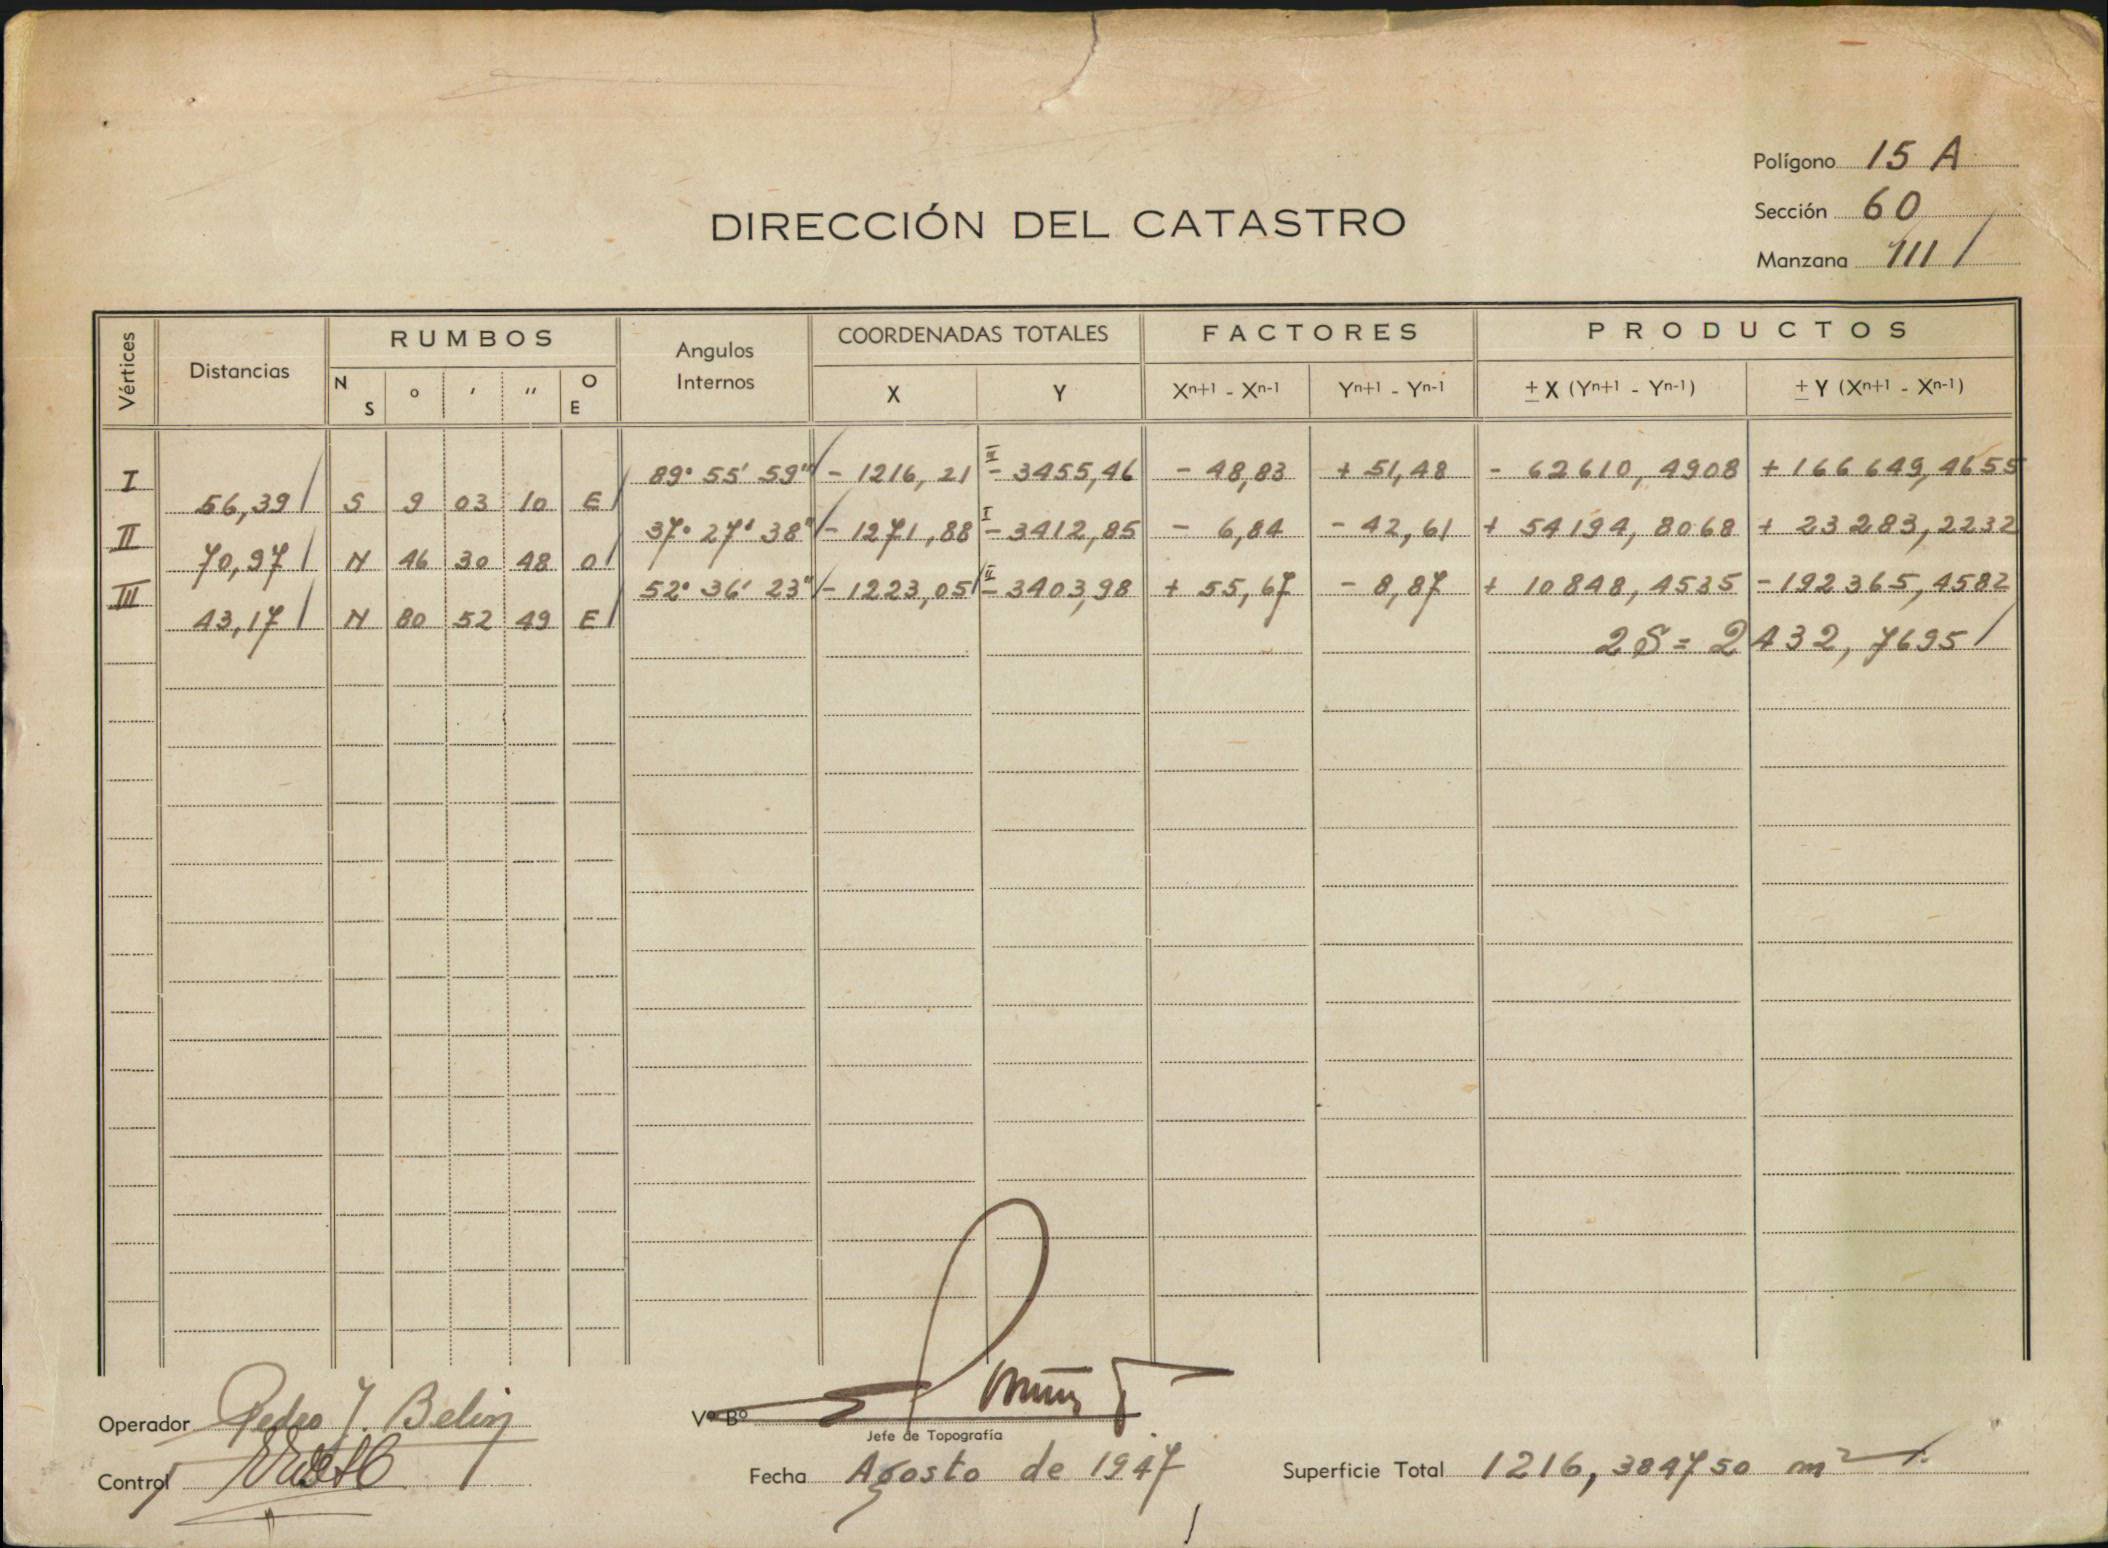 Polígono 15 A
Sección 60
Manzana 111 /
DIRECCIÓN DEL CATASTRO
Vértices Distancias RUMBOS Angulos Internos COORDENADAS TOTALES FACTORES PRODUCTOS
N S ° ′ ″ O E X Y Xn+1 - Xn-1 Yn+1 - Yn-1 ± X (Yn+1 - Yn-1) ± Y (Xn+1 - Xn-1)
I 89° 55' 59" / - 1216,21 III - 3455,46 - 48,83 + 51,48 - 62610,4908 + 166649,4655
56,39 / S 9 03 10 E /
II 37° 27' 38" / - 1271,88 I - 3412,85 - 6,84 - 42,61 + 54194,8068 + 23283,2232
70,97 / N 46 30 48 O /
III 52° 36' 23" / - 1223,05 II - 3403,98 + 55,67 - 8,87 + 10848,4535 - 192365,4582
43,17 / N 80 52 49 E /
2S = 2432,7695 /
Operador Pedro J. Belin
Vº Bº
Jefe de Topografía
Control
Fecha Agosto de 1947
Superficie Total 1216,384750 m²